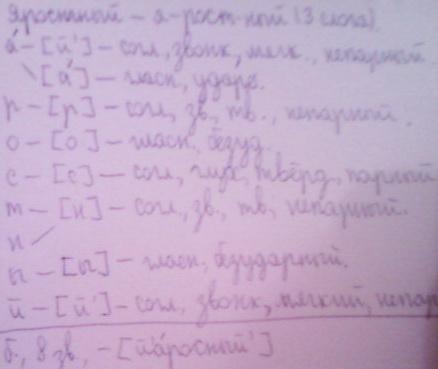 яростный – я-рост-ный (3 слога).
а́ – [й'] – согл, звонк, мягк., непарный
\ [а́] – гласн, ударв.
р – [р] – согл, зв., тв., непарный.
о – [о] – гласн, безуд.
с – [с] – согл, глух, твёрд, парный
т – [н] – согл., зв., тв, непарный.
н /
ы – [ы] – гласн, безударный.
й – [й'] – согл, звонк, мягкий, непар
б., 8 зв, – [й'а́росный']